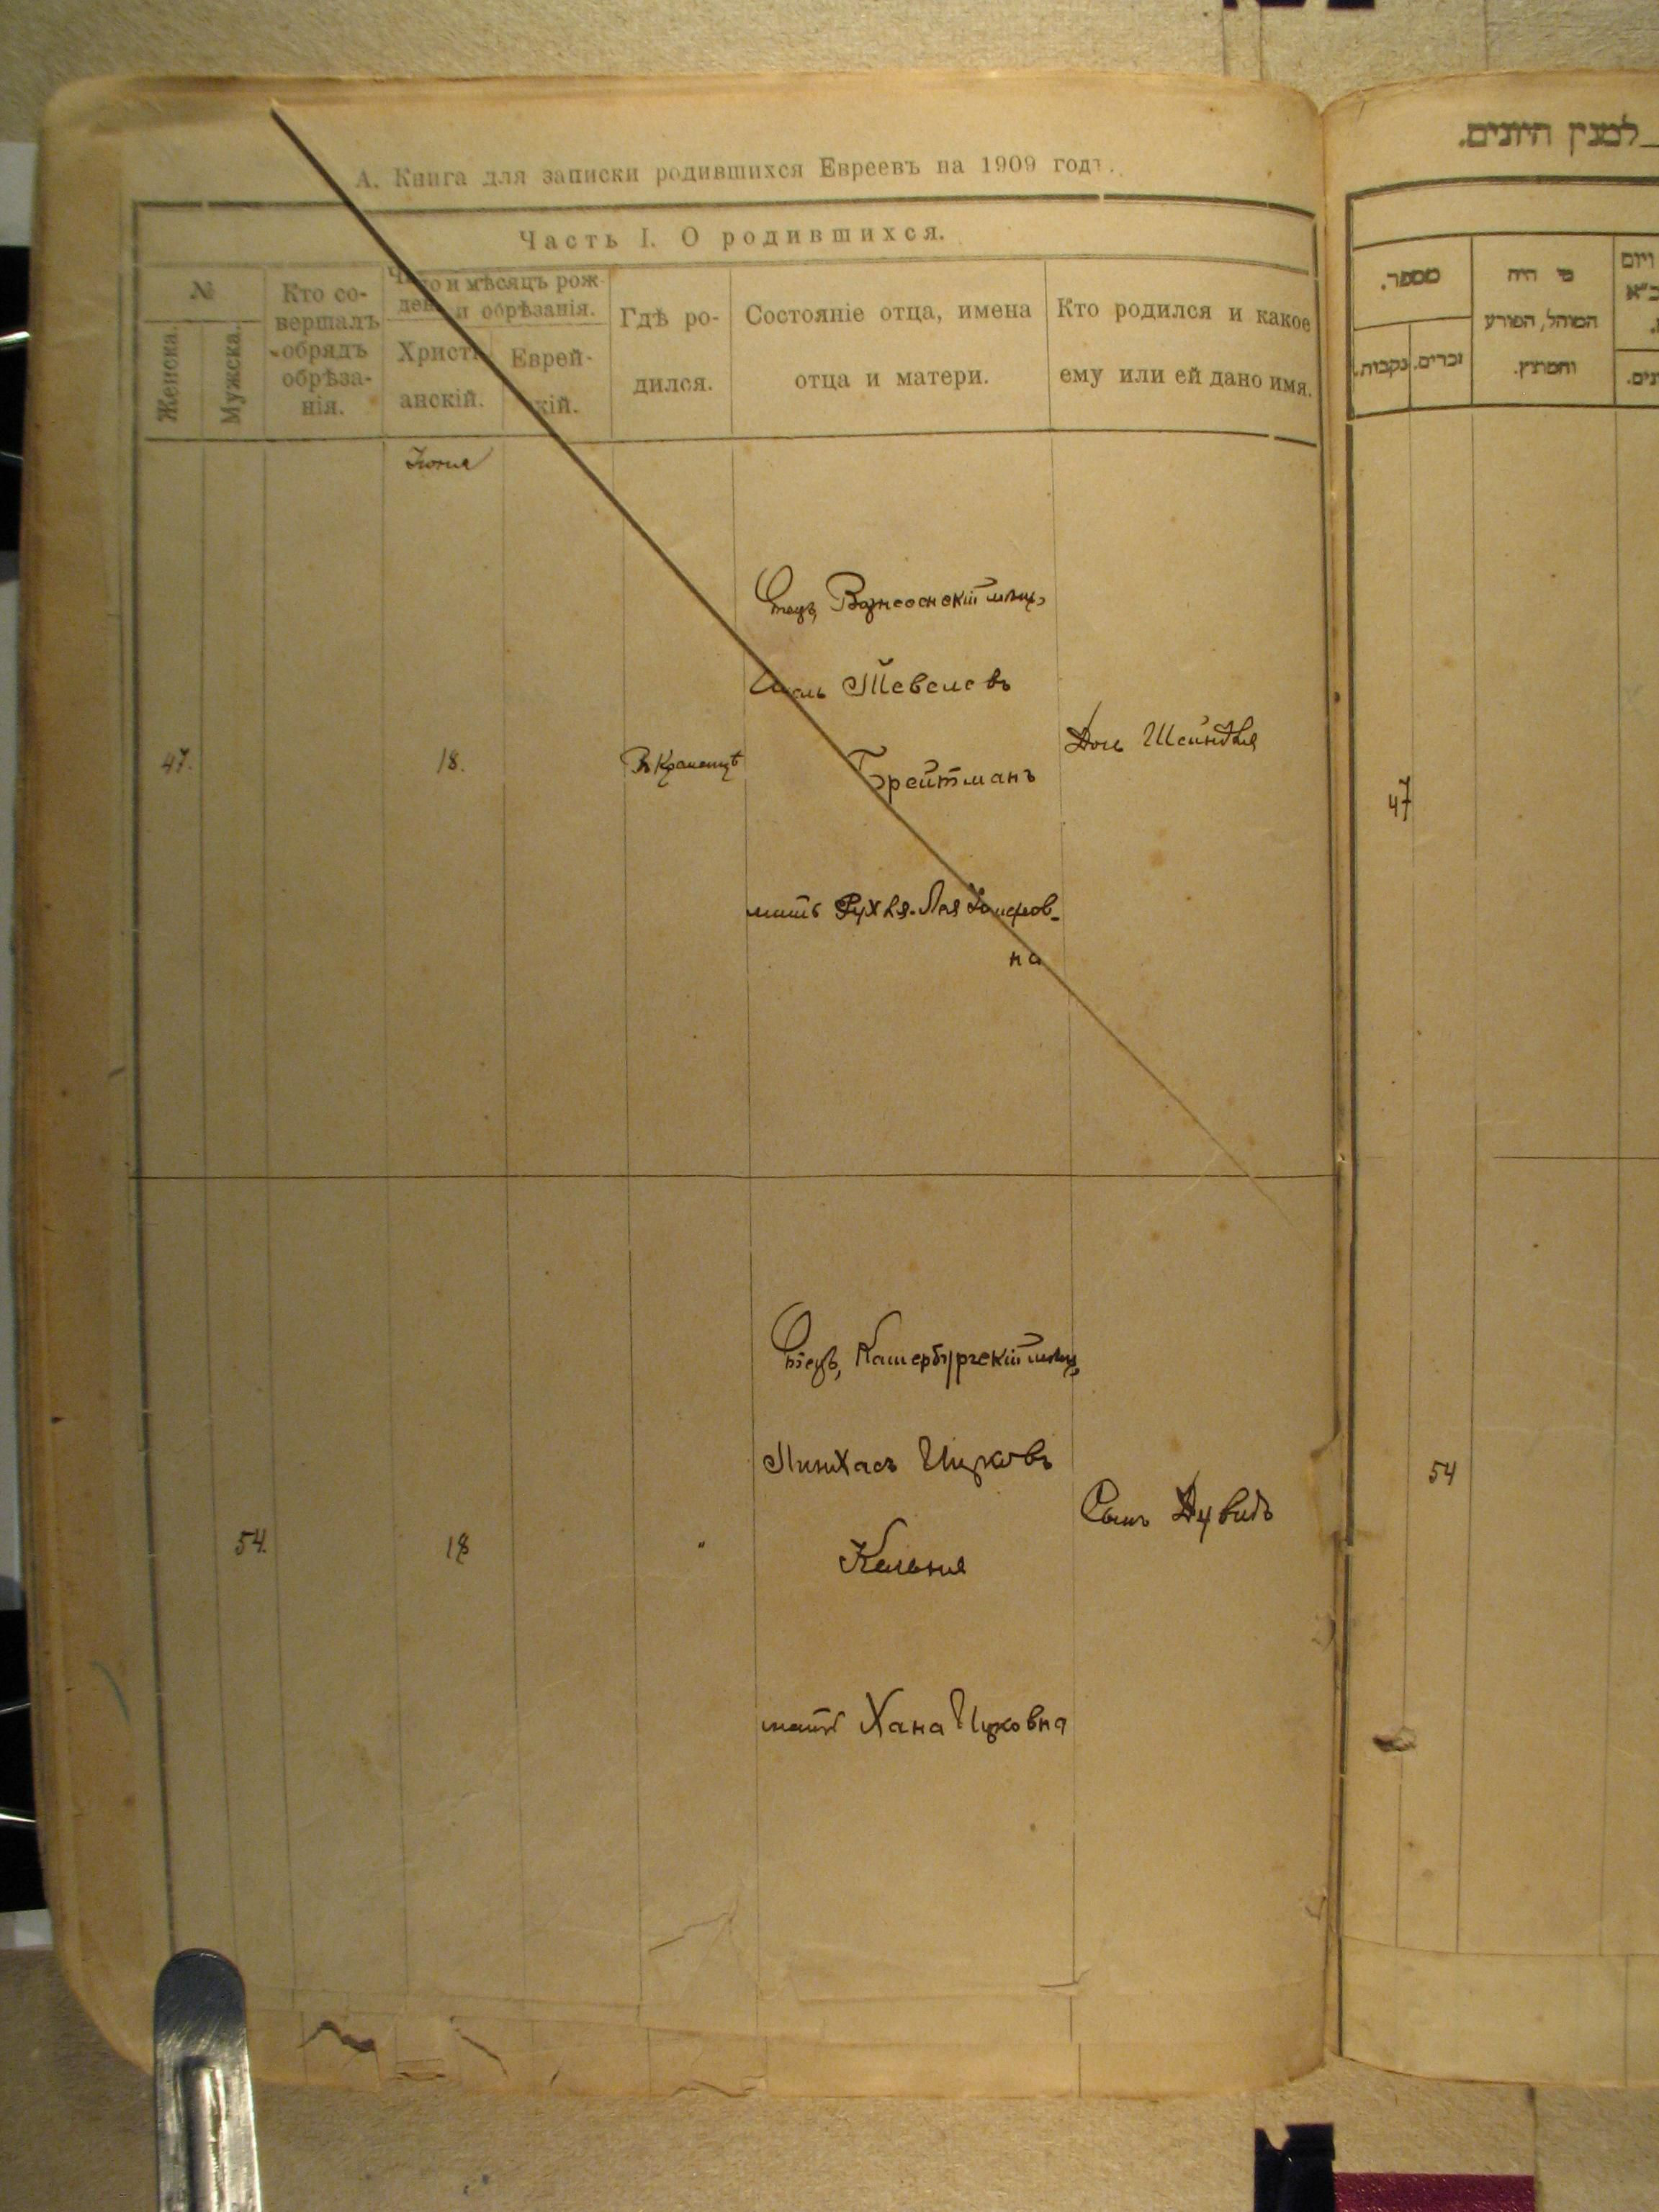 А. Книга для записки родившихся Евреевъ на 1909 годъ.
Часть I. О родившихся.
№
Женска.
Мужска.
Кто со-
вершалъ
обрядъ
обрѣза-
нія.
Число и мѣсяцъ рож-
денія и обрѣзанія.
Христі-
анскій.
Еврей-
скій.
Гдѣ ро-
дился.
Состояніе отца, имена
отца и матери.
Кто родился и какое
ему или ей дано имя.
47.
18.
Отецъ, Вознесенскій мѣщ.
Тевелевъ
Брейтманъ
мать Рухля-Лая
на
Дочь Шейндля
54.
18
"
Отецъ, Кашербургскій мѣщ.
Пинхасъ Ицковъ
Кельня
мать Хана Ицковна
Сынъ Дувидъ
למנין היונים.
מספר.
נקבות.
זכרים.
מי היה
המוהל, הפורע
והמתיץ.
47
54